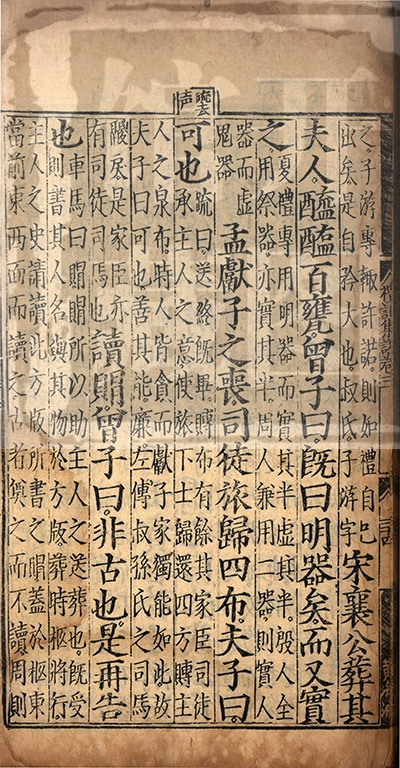 之子游專輒許諾則如禮自己
出矣是自矜大也叔氏子游字
宋襄公葬其
夫人醯醢百甕曾子曰既曰明器矣而又實
之
夏禮專用明器而實其半虛其半殷人全
用祭器亦實其半周人兼用二器則實人
器而虛
鬼器
孟獻子之喪司徒旅歸四布夫子曰
可也
疏曰送終既畢賻布有餘其家臣司徒
承主人之意使旅下士歸還四方賻主
人之泉布時人皆貪而獻子家獨能如此故
夫子曰可也善其能廉左傳叔孫氏之司馬
鬷戾是家臣亦
有司徒司馬也
讀賵曾子曰非古也是再告
也
車馬曰賵賵所以助主人之送葬也既受
則書其人名與其物於方版葬時柩將行
主人之史請讀此方版所書之賵蓋於柩東
當前東西面而讀之古者奠之而不讀周則